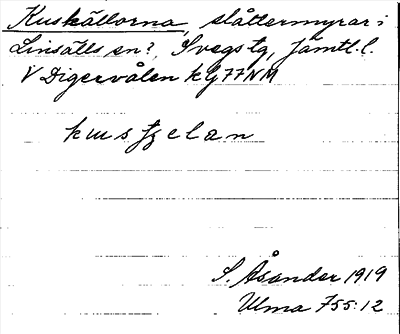 Kuskällorna, slåttermyrar i
Linsälls sn?, Svegs tg, Jämtl. l.
V Digervålen kG77NM
kusfzelan
S. Åsander 1919
Ulma 755:12